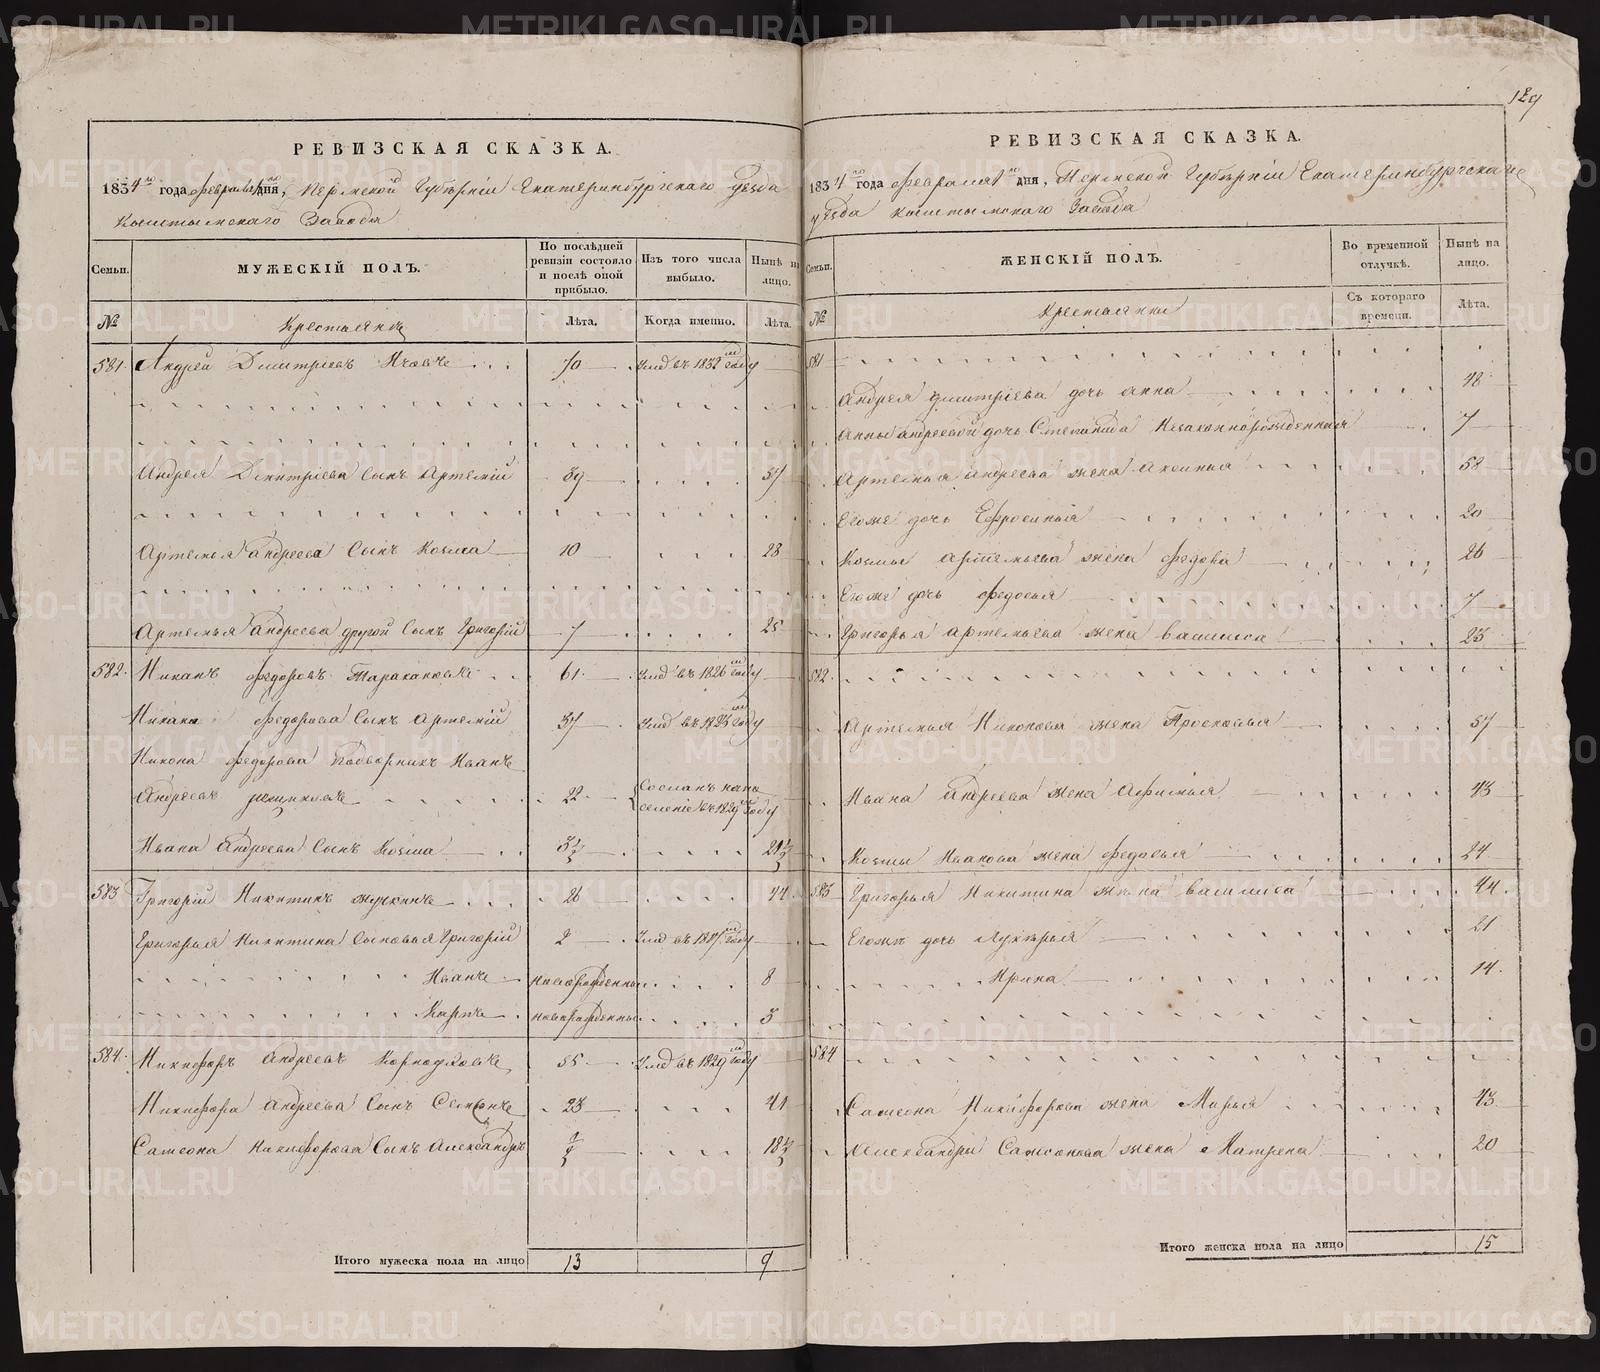 129
РЕВИЗСКАЯ СКАЗКА.
1834го года февраля 1го дня, Пермской Губерніи Екатеринбургскаго уезда
Кыштымскаго Завода
Семьи.
МУЖЕСКІЙ ПОЛЪ.
По послѣдней ревизіи состояло и послѣ оной прибыло.
Изъ того числа выбыло.
Нынѣ на лицо.
№
Крестьянъ
Лѣта.
Когда именно.
Лѣта.
581. Андрей Дмитріевъ 70 Умд въ 1832м году
Андрея Дмитріева Сынъ Артемій 39 57
Артемья Андреева Сынъ Козма 10 28
Артемья Андреева другой Сынъ Григорій 7 25
582. Никанъ Федоровъ Таракановъ 61 Умд въ 1826м году
Никана Федорова Сынъ Артемій 37 Умд въ 1825м году
Никона Федорова Подворникъ Иванъ
Андреевъ 22 Сосланъ на по
селеніе въ 1829м году
Ивана Андреева Сынъ Козма 3½ 21½
583 Григорій Никитинъ 26 44
Григорья Никитина Сыновья Григорій 2 Умд въ 1817м году
Иванъ новорожденны 8
Карпъ новорожденны 3
584. Никифоръ Андреевъ 55 Умд въ 1829м году
Никифора Андреева Сынъ Самсонъ 23 41
Самсона Никифорова Сынъ Александръ ½ 18½
Итого мужеска пола на лицо 13 9
РЕВИЗСКАЯ СКАЗКА.
1834го года февраля 1го дня, Пермской Губерніи Екатеринбургскаго
уезда Кыштымскаго Завода
Семьи.
ЖЕНСКІЙ ПОЛЪ.
Во временной отлучкѣ.
Нынѣ на лицо.
№
Крестьянки
Съ котораго времени.
Лѣта.
581
Андрея Дмитріева дочь Анна 48
Анны Андреевой дочь Степанида Незаконнорожденная 7
Артемья Андреева жена Аксинья 58
Егоже дочь Ефросинья 20
Козмы Артемьева жена Федора 26
Егоже дочь Федосья 7
Григорья Артемьева жена Василиса 23
582
Артемья Никонова жена Просковья 57
Ивана Андреева жена Афимья 43
Козмы Иванова жена Федосья 24
583 Григорья Никитина жена Василиса 44
Егоже дочь Лукерья 21
Ирина 14
584
Самсона Никифорова жена Марья 43
Александры Самсонова жена Матрена 20
Итого женска пола на лицо 15
METRIKI.GASO-URAL.RU